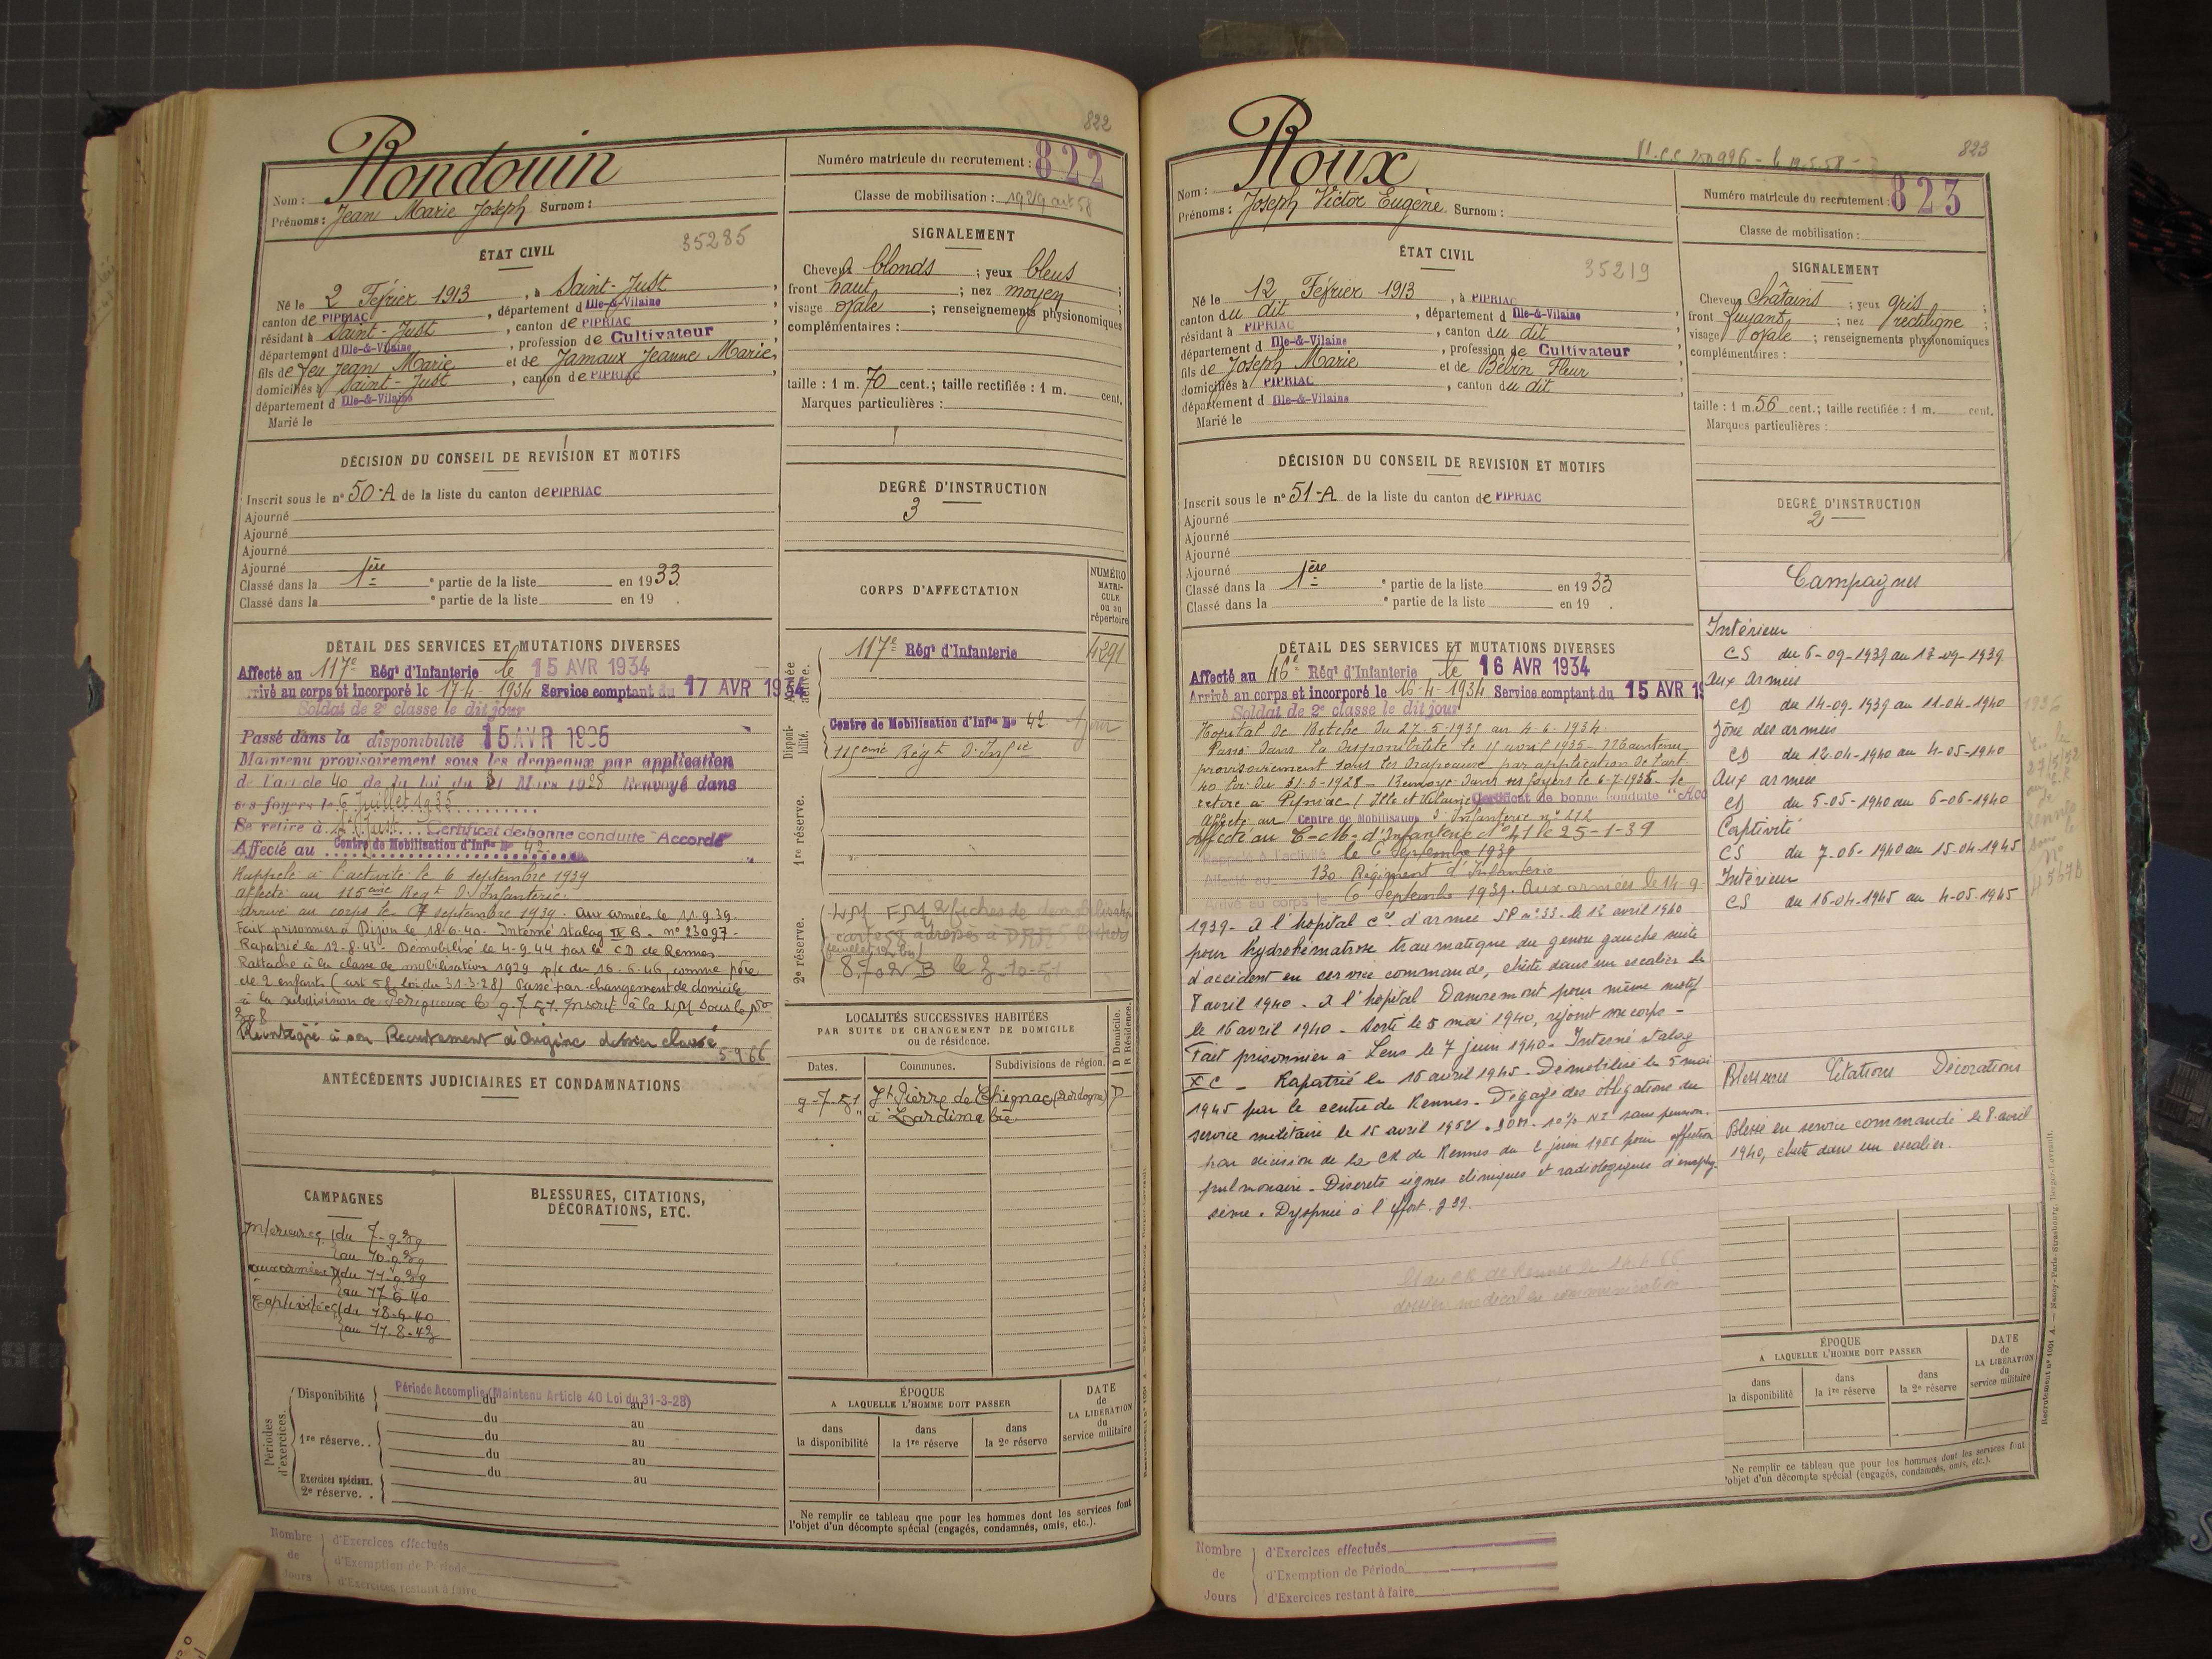 822
Rondouin
Nom :
Prénoms : Jean Marie Joseph Surnom :
Numéro matricule du recrutement : 822
Classe de mobilisation : 1929 art 58
ÉTAT CIVIL
35285
Né le 2 Février 1913, à Saint-Just,
canton de PIPRIAC, département d Ille-&-Vilaine
résidant à Saint-Just, canton de PIPRIAC,
département d Ille-&-Vilaine, profession de Cultivateur
fils de feu Jean Marie et de Jamaux Jeanne Marie,
domiciliés à Saint-Just, canton de PIPRIAC,
département d Ille-&-Vilaine
Marié le
SIGNALEMENT
Cheveux blonds ; yeux bleus
front haut ; nez moyen ;
visage ovale ; renseignements physionomiques
complémentaires :
taille : 1 m. 70 cent.; taille rectifiée : 1 m. cent.
Marques particulières :
DÉCISION DU CONSEIL DE REVISION ET MOTIFS
Inscrit sous le n° 50-A de la liste du canton de PIPRIAC
Ajourné
Ajourné
Ajourné
Ajourné
Classé dans la 1ère e partie de la liste en 1933.
Classé dans la e partie de la liste en 19 .
DEGRÉ D'INSTRUCTION
3
CORPS D'AFFECTATION
NUMÉRO
MATRI-
CULE
OU AU
répertoire
Armée active.
117e Régt d'Infanterie
4291
Disponibilité.
Centre de Mobilisation d'Infie No 42
115ème Régt d'Infie
1re réserve.
2e réserve.
8702 B le 3-10-51
DÉTAIL DES SERVICES ET MUTATIONS DIVERSES
Affecté au 117e Régt d'Infanterie le 15 AVR 1934
Arrivé au corps et incorporé le 17-4-1934 Service comptant du 17 AVR 1934
Soldat de 2e classe le dit jour
Passé dans la disponibilité 15 AVR 1935
Maintenu provisoirement sous les drapeaux par application
de l'article 40 de la loi du 31 Mars 1928 Renvoyé dans
ses foyers le 6 Juillet 1935
Se retire à St Just. Certificat de bonne conduite "Accordé
Affecté au Centre de Mobilisation d'Infie No 42
Rappelé à l'activité le 6 septembre 1939
affecté au 115ème Régt d'Infanterie.
arrivé au corps le 7 septembre 1939. aux armées le 11.9.39.
Fait prisonnier à Dijon le 18-6-40- Interné stalag IX B. n° 23097-
Rapatrié le 12-8-43- Démobilisé le 4-9-44 par le CD de Rennes
Rattaché à la classe de mobilisation 1929 p/c du 16-6-46, comme père
de 2 enfants (art 58 loi du 31-3-28) Passé par changement de domicile
à la subdivision de Périgueux le 9-7-51. Inscrit à la LM sous le No
308
Réintégré à son Recrutement d'Origine dossier classé
5966
ANTÉCÉDENTS JUDICIAIRES ET CONDAMNATIONS
LOCALITÉS SUCCESSIVES HABITÉES
PAR SUITE DE CHANGEMENT DE DOMICILE
ou de résidence.
D Domicile.
R Résidence.
Dates. Communes. Subdivisions de région.
9-7-51 St Pierre de Chignac (Dordogne) D
" à Lardimalie
CAMPAGNES
Intérieur CS (du 7-9-39
(au 10-9-39
aux armées (du 11-9-39
(au 17-6-40
Captivité CS (du 18-6-40
(au 11-8-43
BLESSURES, CITATIONS,
DÉCORATIONS, ETC.
Périodes d'exercices.
Disponibilité Période Accomplie (Maintenu Article 40 Loi du 31-3-28)
du au
du au
1re réserve. . du au
du au
Exercices spéciaux. du au
2e réserve. .
ÉPOQUE
A LAQUELLE L'HOMME DOIT PASSER
dans la disponibilité
dans la 1re réserve
dans la 2e réserve
DATE
de
LA LIBÉRATION
du
service militaire
Ne remplir ce tableau que pour les hommes dont les services font
l'objet d'un décompte spécial (engagés, condamnés, omis, etc.).
Nombre de Jours
d'Exercices effectués
d'Exemption de Période
d'Exercices restant à faire
823
Roux
Nom :
Prénoms : Joseph Victor Eugène. Surnom :
Numéro matricule du recrutement : 823
Classe de mobilisation :
ÉTAT CIVIL
35219
Né le 12 Février 1913, à PIPRIAC
canton du dit, département d Ille-&-Vilaine
résidant à PIPRIAC, canton du dit
département d Ille-&-Vilaine, profession de Cultivateur
fils de Joseph Marie et de Bébin Fleur
domiciliés à PIPRIAC, canton du dit
département d Ille-&-Vilaine
Marié le
SIGNALEMENT
Cheveux châtains ; yeux gris
front fuyant ; nez rectiligne ;
visage ovale ; renseignements physionomiques
complémentaires :
taille : 1 m. 56 cent.; taille rectifiée : 1 m. cent.
Marques particulières :
DÉCISION DU CONSEIL DE REVISION ET MOTIFS
Inscrit sous le n° 51-A de la liste du canton de PIPRIAC
Ajourné
Ajourné
Ajourné
Ajourné
Classé dans la 1ère e partie de la liste en 1933
Classé dans la e partie de la liste en 19 .
DEGRÉ D'INSTRUCTION
2
DÉTAIL DES SERVICES ET MUTATIONS DIVERSES
Affecté au 46e Régt d'Infanterie le 16 AVR 1934
Arrivé au corps et incorporé le 16-4-1934 Service comptant du 15 AVR 19
Soldat de 2e classe le dit jour
Hopital de Bitche du 27-5-1934 au 4-6-1934.
Passé dans la disponibilité le 15 avril 1935- Maintenu
provisoirement sous les drapeaux par application de l'art
40 loi du 31-3-1928 - Renvoyé dans ses foyers le 6-7-1935. Se
retire à Pipriac (Ille et Vilaine) Certificat de bonne conduite "Acc
Affecté au Centre de Mobilisation d'Infanterie n° 212
Affecté au C-M-d'Infanterie No 41 le 25-1-39
Rappelé à l'activité le 6 Septembre 1939
Affecté au 130. Régiment d'Infanterie
Arrivé au corps le 6 Septembre 1939. Aux armées le 14-9-
1939- A l'hopital Cal d'armée SP n° 33- le 12 avril 1940
pour hydrohématrose traumatique du genou gauche suite
d'accident en service commandé, chûte dans un escalier le
8 avril 1940 - A l'hopital Damremont pour même motif
le 16 avril 1940 - Sorti le 5 mai 1940, rejoint son corps -
Fait prisonnier à Lens le 7 juin 1940- Interné stalag
X C - Rapatrié le 16 avril 1945- Démobilisé le 5 mai
1945 par le centre de Rennes - Dégagé des obligations du
service militaire le 15 avril 1952. 10% NI sans pension.
par décision de la CR de Rennes du 2 juin 1955 pour affection
pulmonaire - Discrets signes cliniques et radiologiques d'emphy-
sème. Dyspnée à l'effort. g 39.
Campagnes
Intérieur
CS du 6-09-1939 au 13-09-1939
Aux Armées
CD du 14-09-1939 au 11-04-1940
Zône des armées
CD du 12-04-1940 au 4-05-1940
Aux armées
CD du 5-05-1940 au 6-06-1940
Captivité
CS du 7-06-1940 au 15-04-1945
Intérieur
CS du 16-04-1945 au 4-05-1945
Blessures Citations Décorations
Blessé en service commandé le 8 avril
1940, chute dans un escalier.
ÉPOQUE
A LAQUELLE L'HOMME DOIT PASSER
dans la disponibilité
dans la 1re réserve
dans la 2e réserve
DATE
de
LA LIBÉRATION
du
service militaire
Ne remplir ce tableau que pour les hommes dont les services font
l'objet d'un décompte spécial (engagés, condamnés, omis, etc.).
Nombre de Jours
d'Exercices effectués
d'Exemption de Période
d'Exercices restant à faire